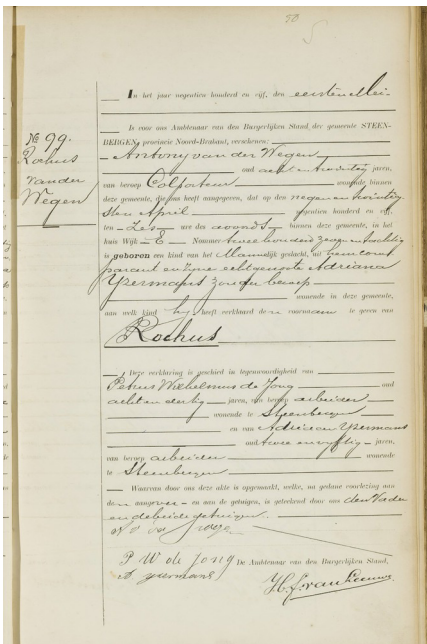 In het jaar negentien honderd en vijf, den eersten Mei
Is voor ons Ambtenaar van den Burgerlijken Stand der gemeente STEEN-
BERGEN, provincie Noord-Brabant, verschenen:
Antony van der Wegen
oud acht en twintig jaren,
van beroep Colporteur wonende binnen
deze gemeente, die ons heeft aangegeven, dat op den negen en twintig
sten April negentien honderd en vijf
ten zes ure des avonds binnen deze gemeente, in het
huis Wijk E Nummer twee honderd zeven en tachtig
is geboren een kind van het Mannelijk geslacht, uit hem Com
parant en zyne echtgenoote Adriana
Yzermans zonder beroep
wonende in deze gemeente,
aan welk kind hy heeft verklaard den voornaam te geven van
Rochus
Deze verklaring is geschied in tegenwoordigheid van
Petrus Wilhelmus de Jong oud
acht en dertig jaren, van beroep arbeider
wonende te Steenbergen
en van Adriaan Yzermans
oud twee en vyftig jaren,
van beroep arbeider wonende
te Steenbergen
Waarvan door ons deze akte is opgemaakt, welke, na gedane voorlezing aan
den aangever en aan de getuigen, is geteekend door ons den Vader
en de beide getuigen.
P W de Jong De Ambtenaar van den Burgerlijken Stand,
A yzermans
No 99.
Rochus
van der
Wegen